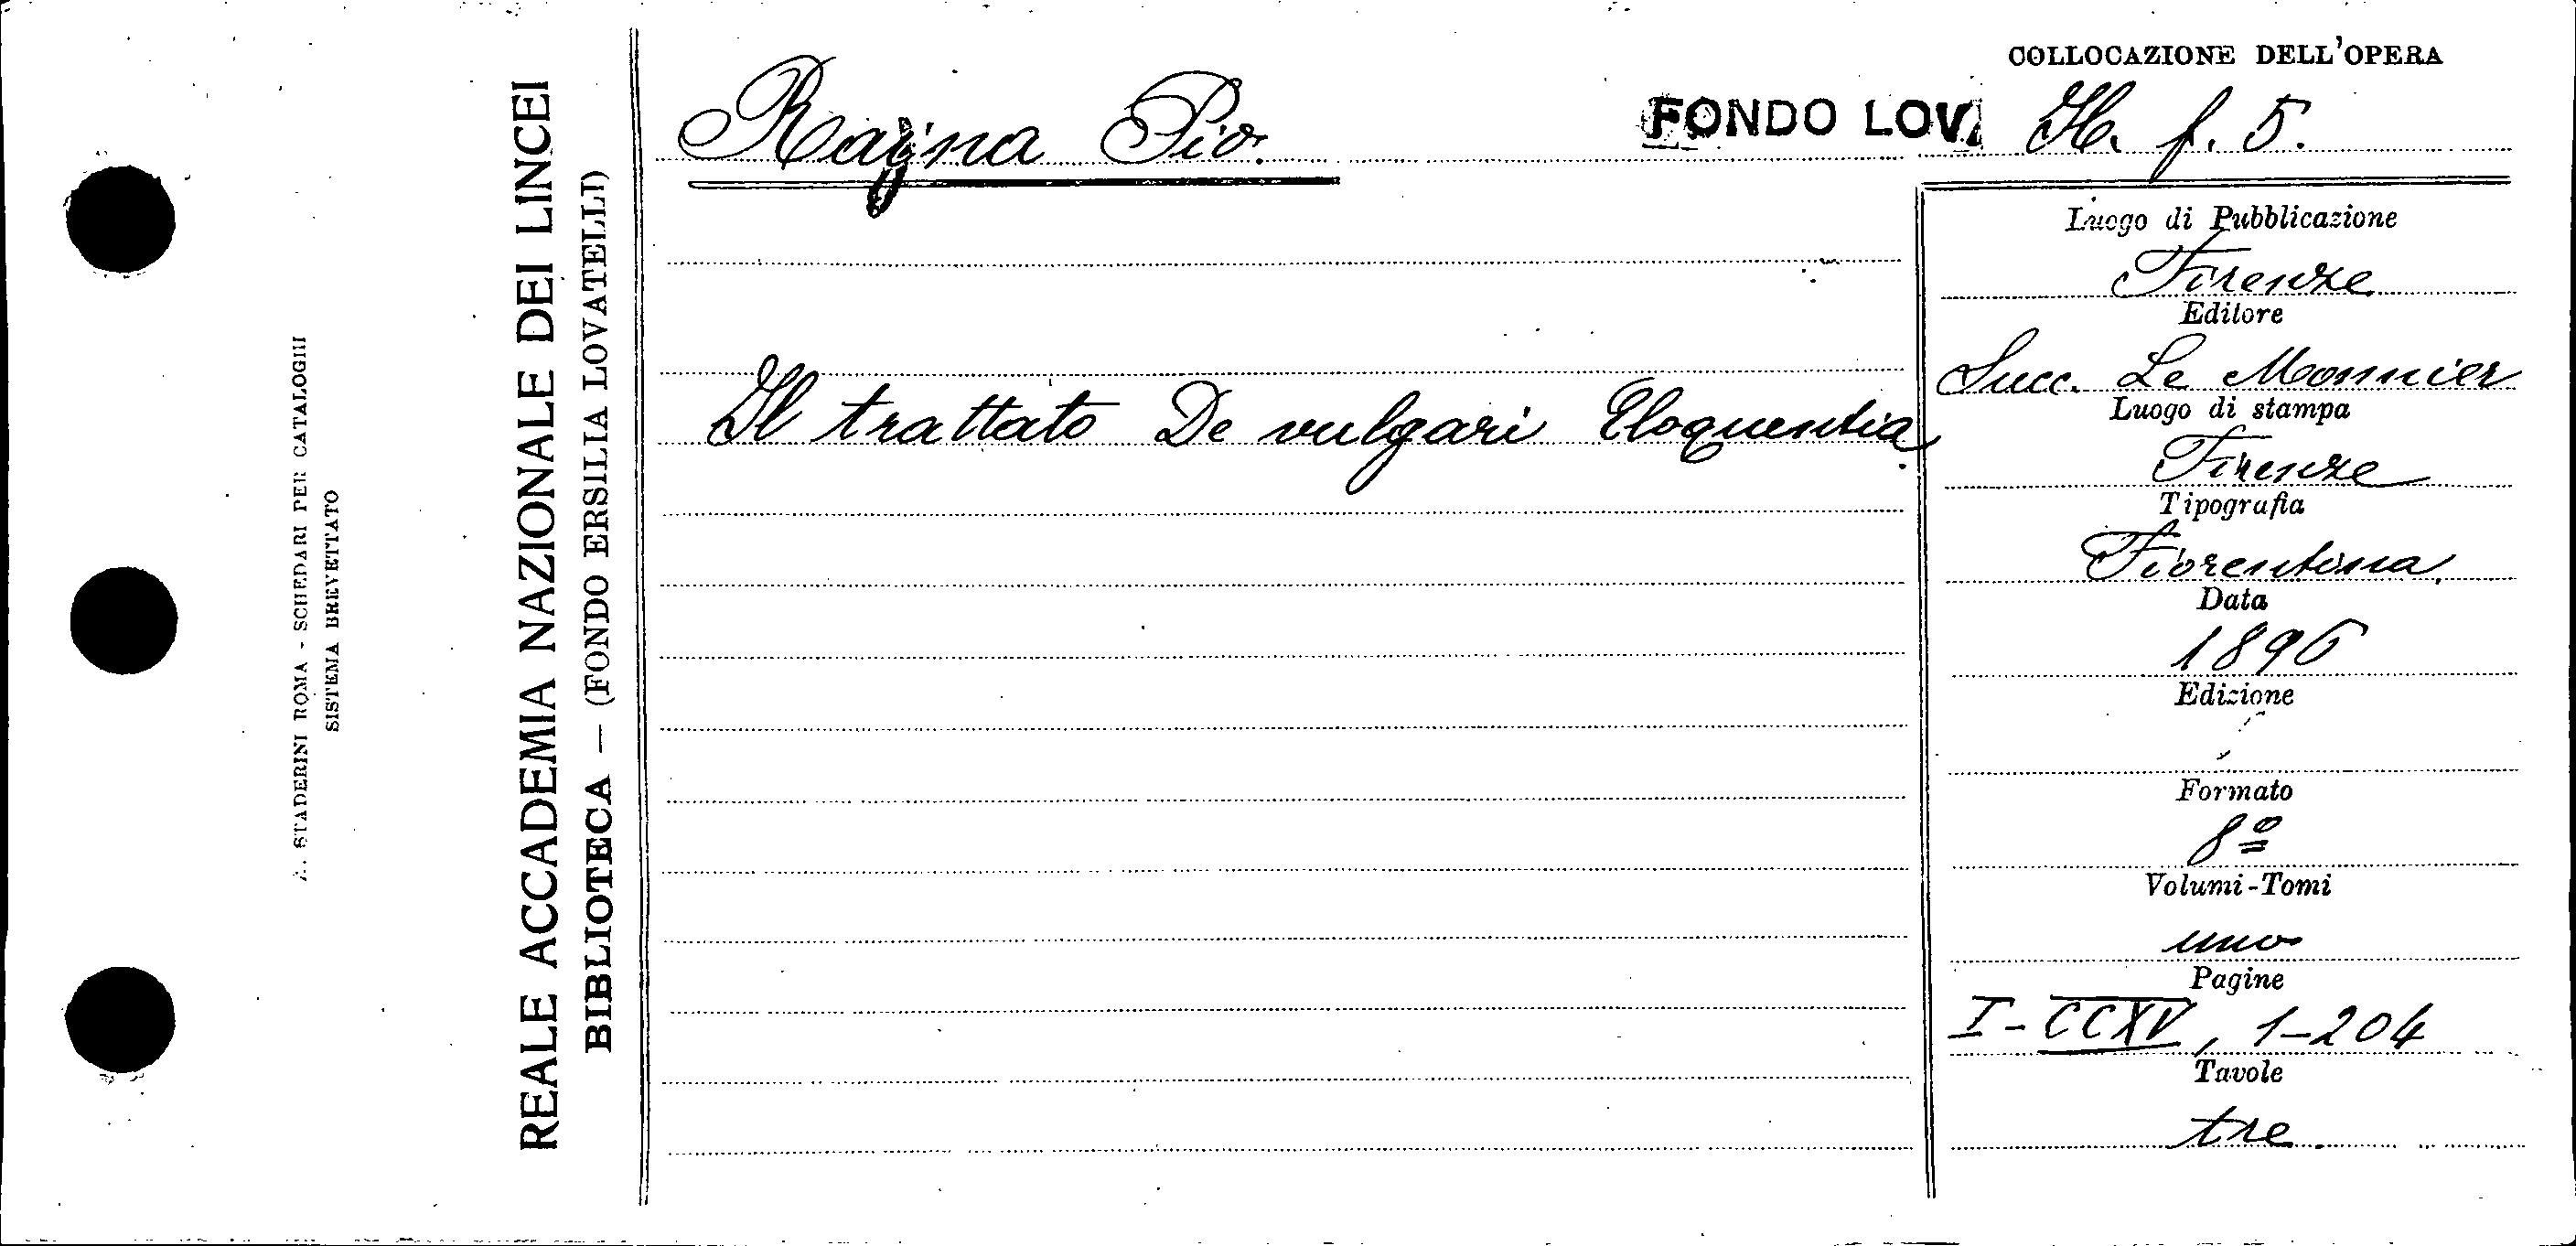 A. STADERINI ROMA - SCHEDARI PER CATALOGHI
SISTEMA BREVETTATO
REALE ACCADEMIA NAZIONALE DEI LINCEI
BIBLIOTECA — (FONDO ERSILIA LOVATELLI)
Rajna Pio.
FONDO LOV
Il trattato De vulgari Eloquentia.
COLLOCAZIONE DELL'OPERA
f. 5.
Luogo di Pubblicazione
Firenze
Editore
Succ. Le Monnier
Luogo di stampa
Firenze
Tipografia
Fiorentina
Data
1896
Edizione
Formato
8º
Volumi-Tomi
uno
Pagine
I-CCXV, 1-204
Tavole
tre.